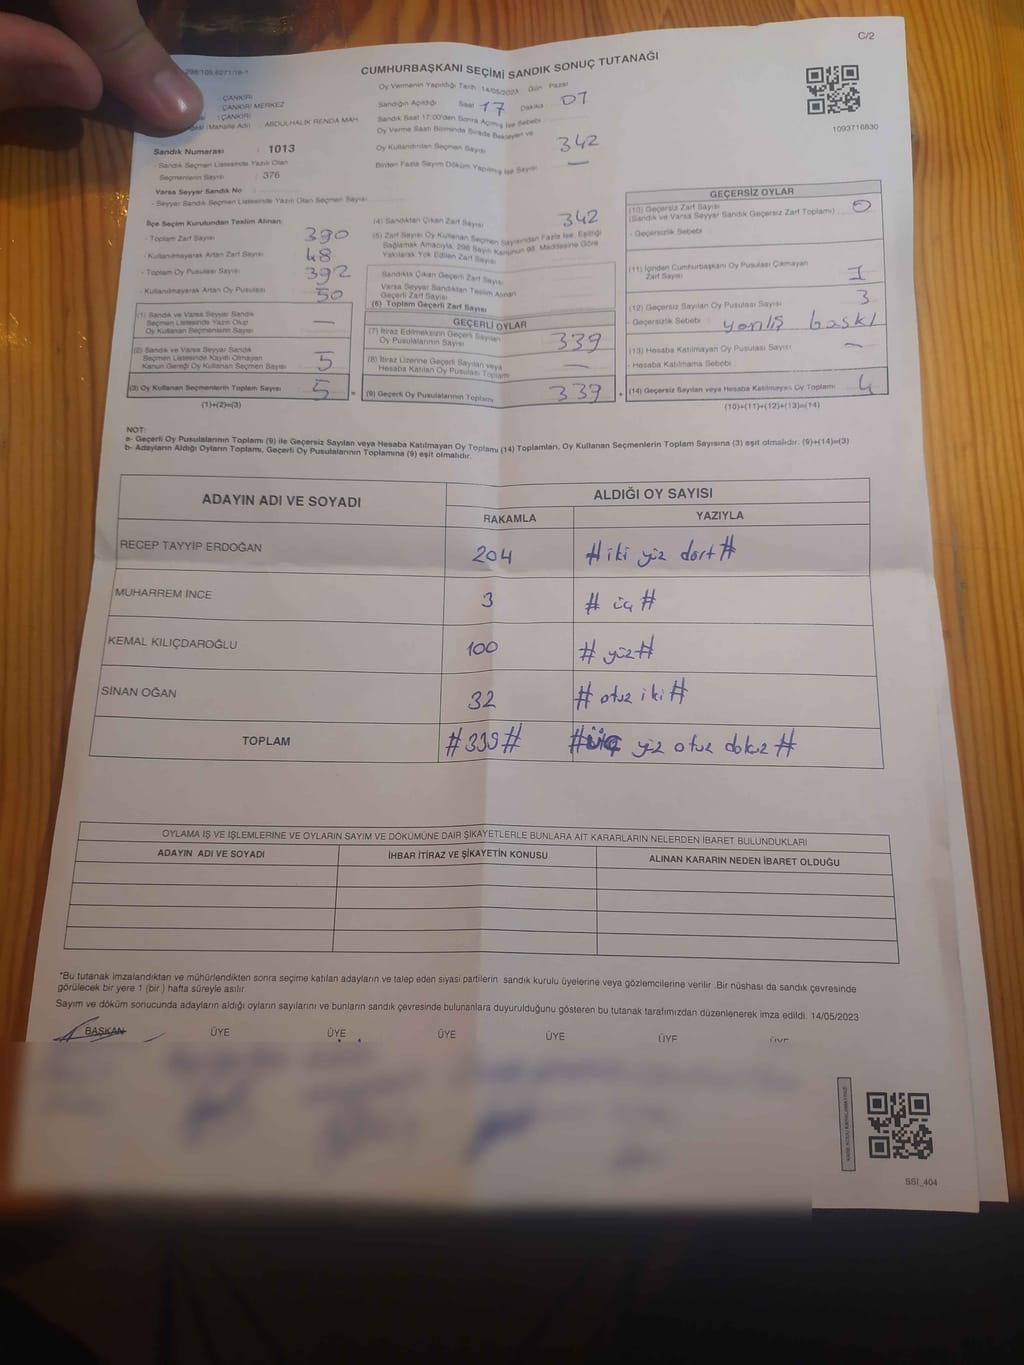 C/2
CUMHURBAŞKANI SEÇİMİ SANDIK SONUÇ TUTANAĞI
: ÇANKIRI
: ÇANKIRI MERKEZ
: ÇANKIRI
(Mahalle Adı) : ABDULHALİK RENDA MAH.
Sandık Numarası : 1013
- Sandık Seçmen Listesinde Yazılı Olan
Seçmenlerin Sayısı : 376
Varsa Seyyar Sandık No
- Seyyar Sandık Seçmen Listesinde Yazılı Olan Seçmen Sayısı
Oy Vermenin Yapıldığı Tarih : 14/05/2023 Gün Pazar
Sandığın Açıldığı Saat 17 Dakika 07
Sandık Saat 17:00'den Sonra Açılmış İse Sebebi
Oy Verme Saati Bitiminde Sırada Bekleyen ve
Oy Kullandırılan Seçmen Sayısı 342
Birden Fazla Sayım Döküm Yapılmış İse Sayısı —
1093716830
İlçe Seçim Kurulundan Teslim Alınan:
- Toplam Zarf Sayısı 390
- Kullanılmayarak Artan Zarf Sayısı 48
- Toplam Oy Pusulası Sayısı 392
- Kullanılmayarak Artan Oy Pusulası 50
(1) Sandık ve Varsa Seyyar Sandık
Seçmen Listesinde Yazılı Olup
Oy Kullanan Seçmenlerin Sayısı —
(2) Sandık ve Varsa Seyyar Sandık
Seçmen Listesinde Kayıtlı Olmayan
Kanun Gereği Oy Kullanan Seçmen Sayısı 5
(3) Oy Kullanan Seçmenlerin Toplam Sayısı 5
(1)+(2)=(3)
(4) Sandıktan Çıkan Zarf Sayısı 342
(5) Zarf Sayısı Oy Kullanan Seçmen Sayısından Fazla İse, Eşitliği
Sağlamak Amacıyla, 298 Sayılı Kanunun 98. Maddesine Göre
Yakılarak Yok Edilen Zarf Sayısı
Sandıkta Çıkan Geçerli Zarf Sayısı
Varsa Seyyar Sandıktan Teslim Alınan
Geçerli Zarf Sayısı
(6) Toplam Geçerli Zarf Sayısı
GEÇERLİ OYLAR
(7) İtiraz Edilmeksizin Geçerli Sayılan
Oy Pusulalarının Sayısı 339
(8) İtiraz Üzerine Geçerli Sayılan veya
Hesaba Katılan Oy Pusulası Toplamı —
(9) Geçerli Oy Pusulalarının Toplamı 339
GEÇERSİZ OYLAR
(10) Geçersiz Zarf Sayısı
(Sandık ve Varsa Seyyar Sandık Geçersiz Zarf Toplamı) 0
- Geçersizlik Sebebi
(11) İçinden Cumhurbaşkanı Oy Pusulası Çıkmayan
Zarf Sayısı 1
(12) Geçersiz Sayılan Oy Pusulası Sayısı 3
- Geçersizlik Sebebi yanlış baskı
(13) Hesaba Katılmayan Oy Pusulası Sayısı —
- Hesaba Katılmama Sebebi
(14) Geçersiz Sayılan veya Hesaba Katılmayan Oy Toplamı 4
(10)+(11)+(12)+(13)=(14)
NOT:
a- Geçerli Oy Pusulalarının Toplamı (9) ile Geçersiz Sayılan veya Hesaba Katılmayan Oy Toplamı (14) Toplamları, Oy Kullanan Seçmenlerin Toplam Sayısına (3) eşit olmalıdır. (9)+(14)=(3)
b- Adayların Aldığı Oyların Toplamı, Geçerli Oy Pusulalarının Toplamına (9) eşit olmalıdır.
ADAYIN ADI VE SOYADI ALDIĞI OY SAYISI
RAKAMLA YAZIYLA
RECEP TAYYİP ERDOĞAN 204 # iki yüz dört #
MUHARREM İNCE 3 # üç #
KEMAL KILIÇDAROĞLU 100 # yüz #
SİNAN OĞAN 32 # otuz iki #
TOPLAM # 339 # # üç yüz otuz dokuz #
OYLAMA İŞ VE İŞLEMLERİNE VE OYLARIN SAYIM VE DÖKÜMÜNE DAİR ŞİKAYETLERLE BUNLARA AİT KARARLARIN NELERDEN İBARET BULUNDUKLARI
ADAYIN ADI VE SOYADI İHBAR İTİRAZ VE ŞİKAYETİN KONUSU ALINAN KARARIN NEDEN İBARET OLDUĞU
*Bu tutanak imzalandıktan ve mühürlendikten sonra seçime katılan adayların ve talep eden siyasi partilerin sandık kurulu üyelerine veya gözlemcilerine verilir. Bir nüshası da sandık çevresinde
görülecek bir yere 1 (bir ) hafta süreyle asılır.
Sayım ve döküm sonucunda adayların aldığı oyların sayılarını ve bunların sandık çevresinde bulunanlara duyurulduğunu gösteren bu tutanak tarafımızdan düzenlenerek imza edildi. 14/05/2023
BAŞKAN ÜYE ÜYE ÜYE ÜYE ÜYE ÜYE
SSI_404